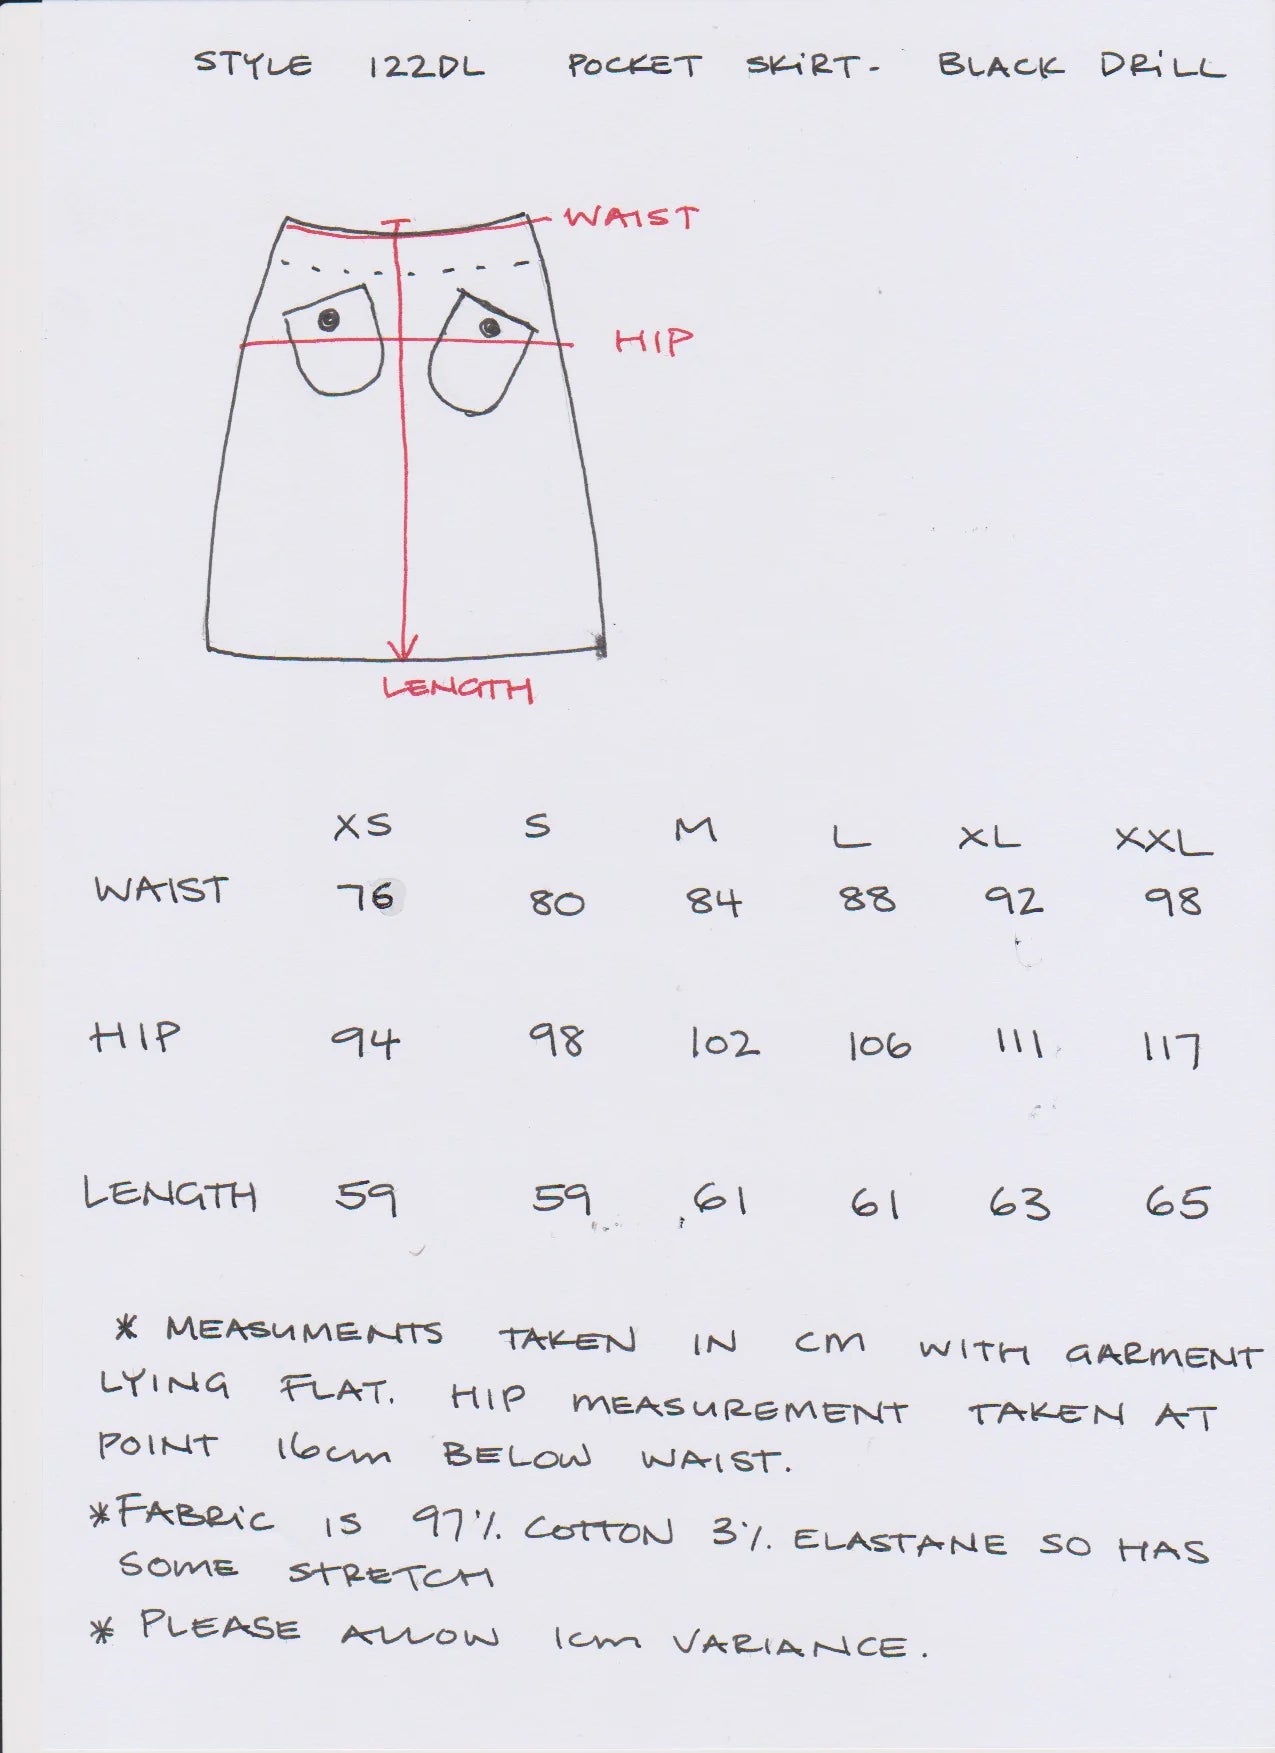 STYLE 122DL POCKET SKiRT- BLACK DRiLL
WAIST
HIP
LENGTH
XS S M L XL XXL
WAIST 76 80 84 88 92 98
HIP 94 98 102 106 111 117
LENGTH 59 59 61 61 63 65
* MEASUMENTS TAKEN IN CM WITH GARMENT
LYING FLAT. HIP MEASUREMENT TAKEN AT
POINT 16cm BELOW WAIST.
*FABRiC IS 97% COTTON 3% ELASTANE SO HAS
SOME STRETCH
* PLEASE ALLOW 1cm VARIANCE.